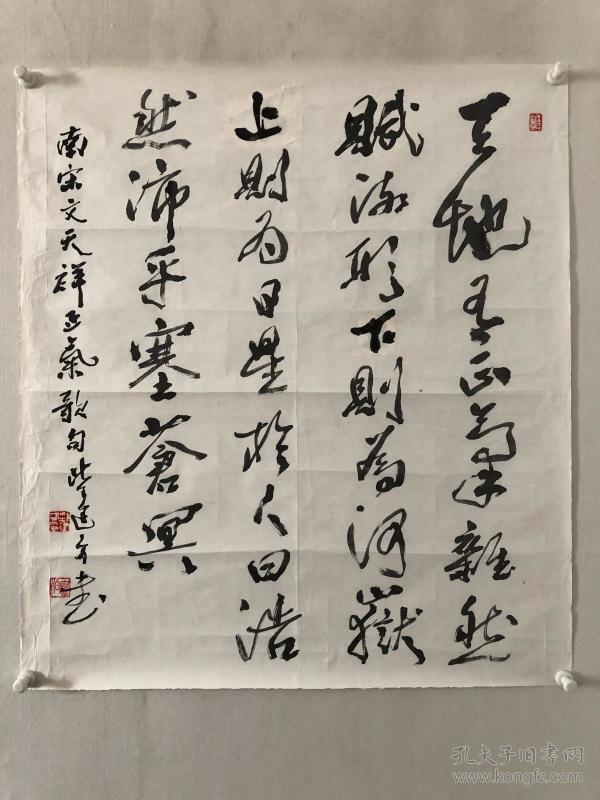 天地有正气雜然
賦流形下則為河嶽
上則為日星於人曰浩
然沛乎塞蒼冥
南宋文天祥正氣歌句柴建方書
孔夫子旧书网
www.kongfz.com